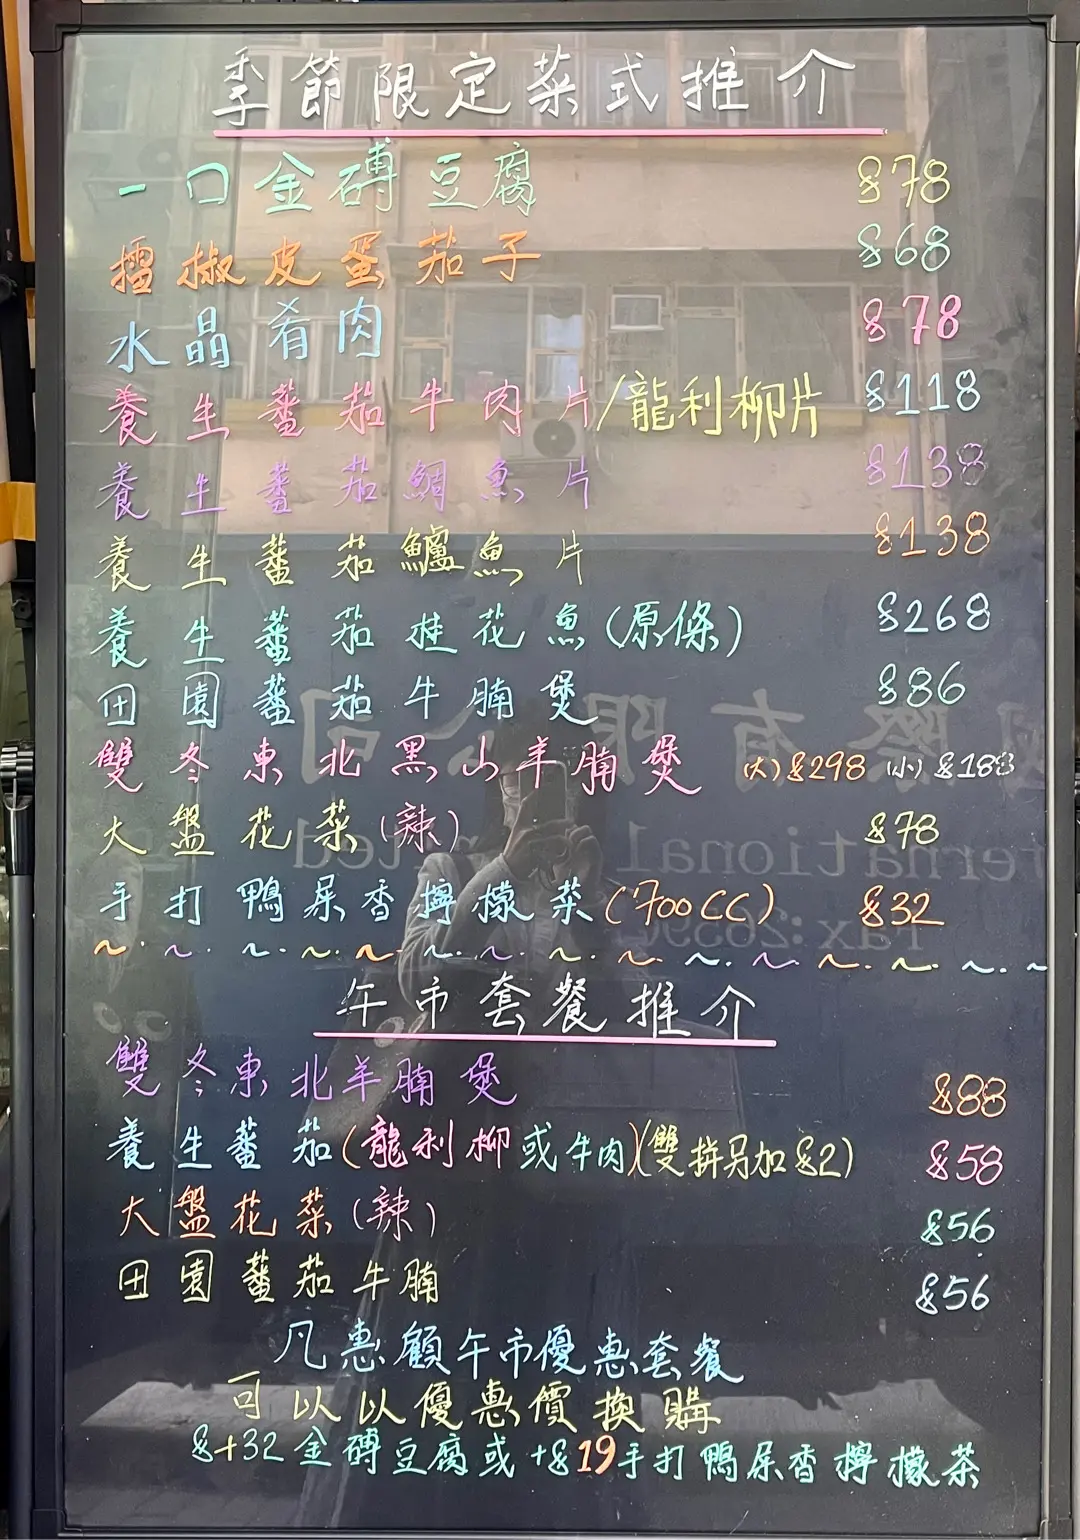 季節限定菜式推介
一口金磚豆腐 $78
擂椒皮蛋茄子 $68
水晶肴肉 $78
養生蕃茄牛肉片/龍利柳片 $118
養生蕃茄鯛魚片 $138
養生蕃茄鱸魚片 $138
養生蕃茄桂花魚(原條) $268
田園蕃茄牛腩煲 $86
雙冬東北黑山羊腩煲 (大)$298 (小)$188
大盤花菜(辣) $78
手打鴨屎香檸檬茶(700CC) $32
午市套餐推介
雙冬東北羊腩煲 $88
養生蕃茄(龍利柳或牛肉)(雙拼另加$2) $58
大盤花菜(辣) $56
田園蕃茄牛腩 $56
凡惠顧午市優惠套餐
可以以優惠價換購
$+32金磚豆腐或+$19手打鴨屎香檸檬茶